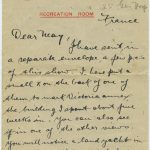 RECREATION ROOM
France
Dear May,
I have sent in
a separate envelope a few pics
of this show. I have put a
small X on the back of one of
them to meet Victoria
the building I spent about five
weeks in. You can also see
it in one of the other views.
You will notice a